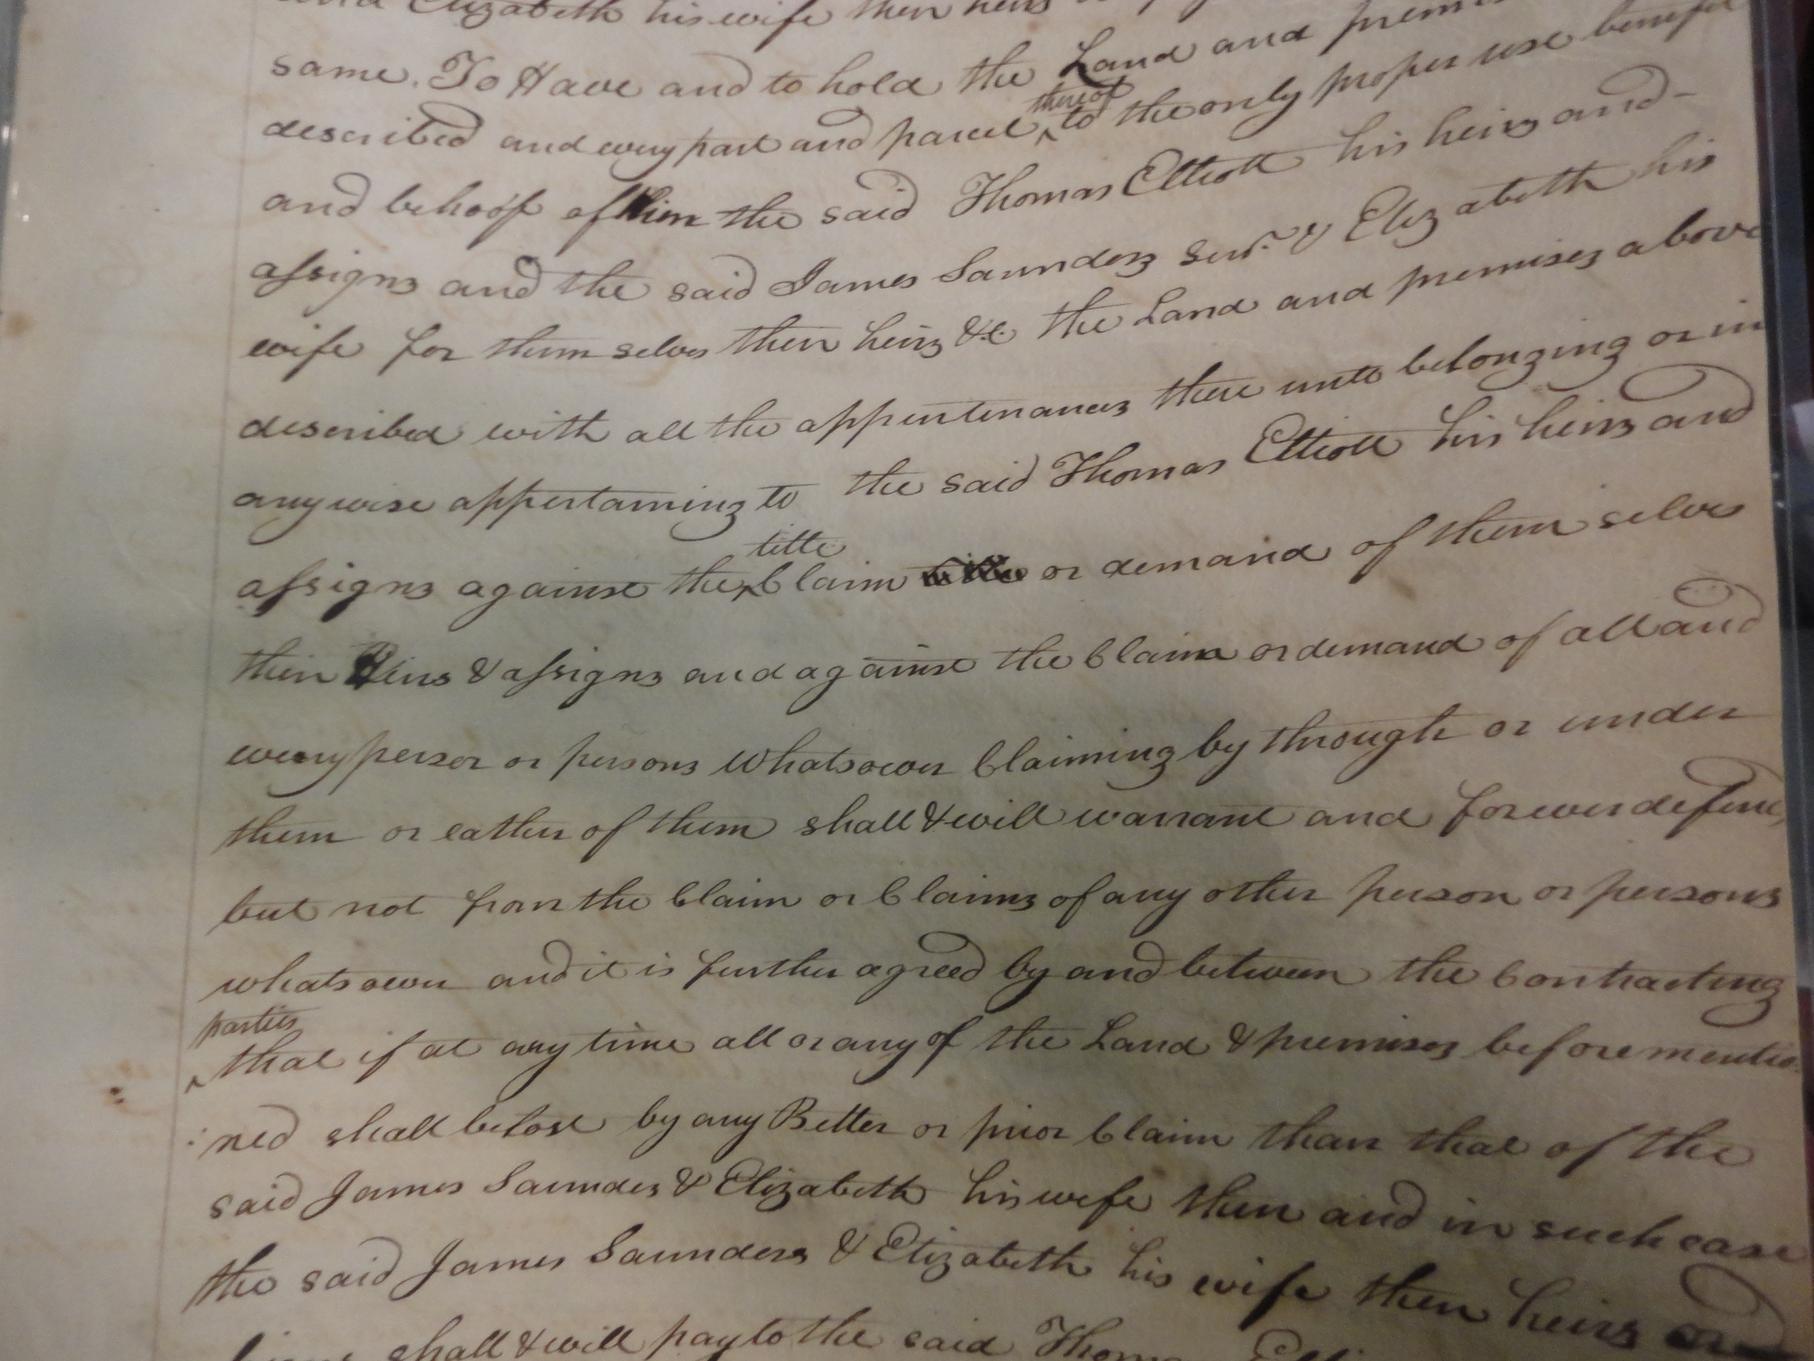 and Elizabeth his wife their heirs
same. To Have and to hold the Land and premis
described and every part and parcel thereof to the only proper use benefit
and behoof of him the said Thomas Elliott his heirs and
assigns and the said James Saunders Senr. & Elizabeth his
wife for them selves their heirs &c the Land and premises above
described with all the appurtenances there unto belonging or in
anywise appertaining to the said Thomas Elliott his heirs and
assigns against the title Claim or demand of them selves
their Heirs & assigns and against the Claim or demand of all and
every person or persons Whatsoever Claiming by through or under
them or eather of them shall & will warrant and forever defend,
but not from the Claim or Claims of any other person or persons
whatsoever and it is further agreed by and between the Contracting
parties that if at any time all or any of the Land & premises before mentio
:ned shall be lost by any Better or prior Claim than that of the
said James Saunders & Elizabeth his wife then and in such case
the said James Saunders & Elizabeth his wife their heirs and
shall & will pay to the said Thomas